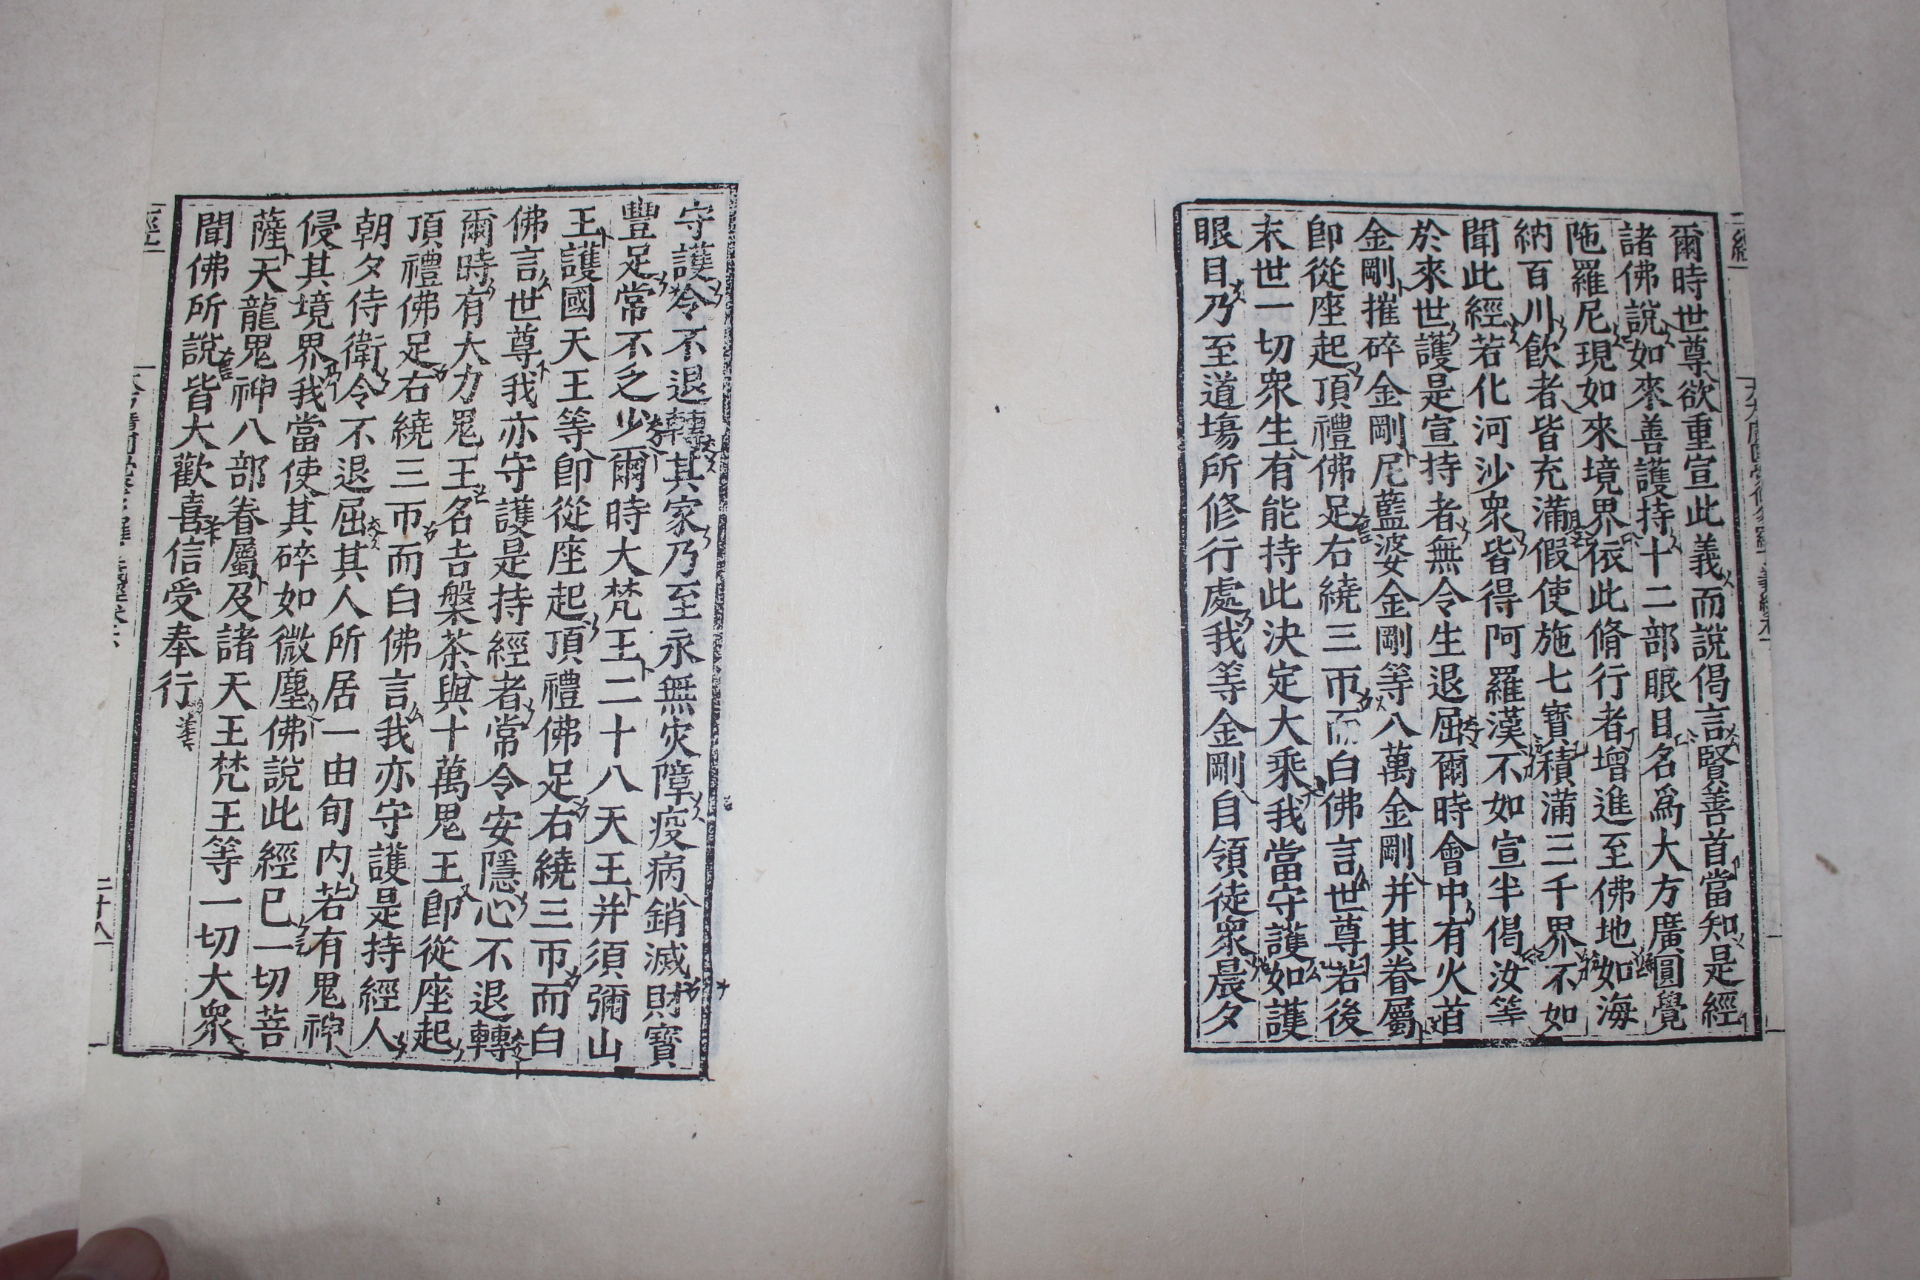 爾時世尊欲重宣此義而說偈言賢善首當知是經
諸佛說如來善護持十二部眼目名爲大方廣圓覺
陁羅尼現如來境界依此脩行者增進至佛地如海
納百川飲者皆充滿假使施七寶積滿三千界不如
聞此經若化河沙衆皆得阿羅漢不如宣半偈汝等
於來世護是宣持者無令生退屈爾時會中有火首
金剛摧碎金剛尼藍婆金剛等八萬金剛并其眷屬
卽從座起頂禮佛足右繞三帀而白佛言世尊若後
末世一切衆生有能持此決定大乘我當守護如護
眼目乃至道場所修行處我等金剛自領徒衆晨夕
守護令不退轉其家乃至永無灾障疫病銷滅財寶
豐足常不乏少爾時大梵王二十八天王并須彌山
王護國天王等卽從座起頂禮佛足右繞三帀而白
佛言世尊我亦守護是持經者常令安隱心不退轉
爾時有大力鬼王名吉槃茶與十萬鬼王卽從座起
頂禮佛足右繞三帀而白佛言我亦守護是持經人
朝夕侍衛令不退屈其人所居一由旬內若有鬼神
侵其境界我當使其碎如微塵佛說此經已一切菩
薩天龍鬼神八部眷屬及諸天王梵王等一切大衆
聞佛所說皆大歡喜信受奉行
經
二十八